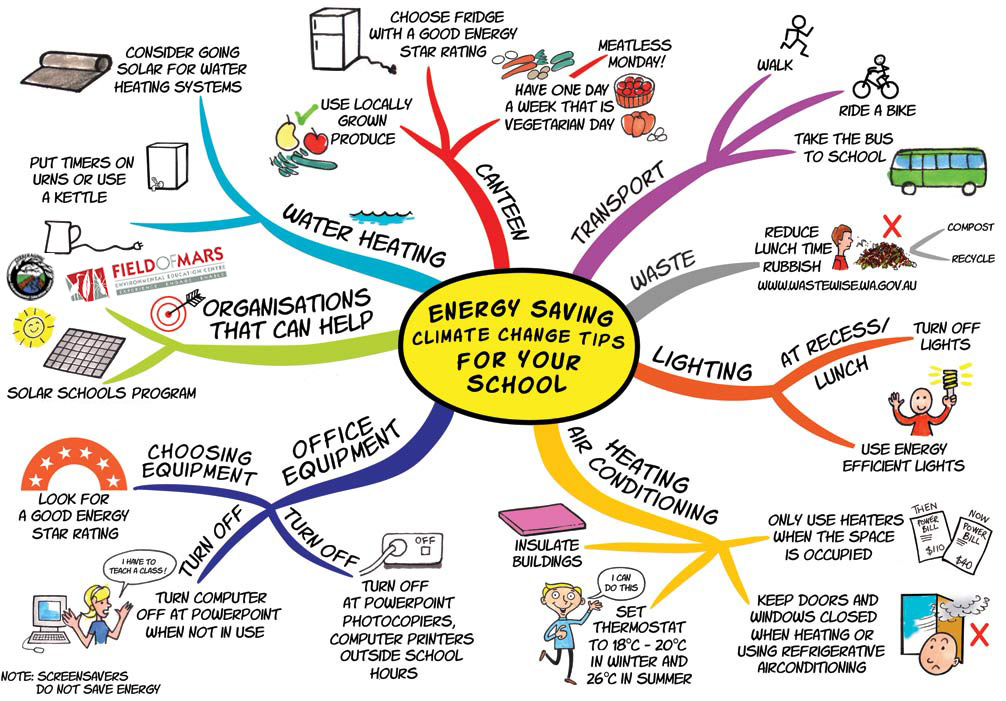 ENERGY SAVING
CLIMATE CHANGE TIPS
FOR YOUR
SCHOOL
CONSIDER GOING
SOLAR FOR WATER
HEATING SYSTEMS
PUT TIMERS ON
URNS OR USE
A KETTLE
WATER HEATING
CHOOSE FRIDGE
WITH A GOOD ENERGY
STAR RATING
USE LOCALLY
GROWN
PRODUCE
MEATLESS
MONDAY!
HAVE ONE DAY
A WEEK THAT IS
VEGETARIAN DAY
CANTEEN
WALK
RIDE A BIKE
TAKE THE BUS
TO SCHOOL
TRANSPORT
WASTE
REDUCE
LUNCH TIME
RUBBISH
WWW.WASTEWISE.WA.GOV.AU
COMPOST
RECYCLE
LIGHTING
AT RECESS/
LUNCH
TURN OFF
LIGHTS
USE ENERGY
EFFICIENT LIGHTS
HEATING
AIR CONDITIONING
ONLY USE HEATERS
WHEN THE SPACE
IS OCCUPIED
THEN
POWER
BILL
$110
NOW
POWER
BILL
$40
KEEP DOORS AND
WINDOWS CLOSED
WHEN HEATING OR
USING REFRIGERATIVE
AIRCONDITIONING
INSULATE
BUILDINGS
I CAN
DO THIS
SET
THERMOSTAT
TO 18°C - 20°C
IN WINTER AND
26°C IN SUMMER
OFFICE
EQUIPMENT
CHOOSING
EQUIPMENT
LOOK FOR
A GOOD ENERGY
STAR RATING
TURN OFF
I HAVE TO
TEACH A CLASS!
TURN COMPUTER
OFF AT POWERPOINT
WHEN NOT IN USE
NOTE: SCREENSAVERS
DO NOT SAVE ENERGY
TURN OFF
OFF
TURN OFF
AT POWERPOINT
PHOTOCOPIERS,
COMPUTER PRINTERS
OUTSIDE SCHOOL
HOURS
ORGANISATIONS
THAT CAN HELP
FIELDOFMARS
ENVIRONMENTAL EDUCATION CENTRE
SOLAR SCHOOLS PROGRAM